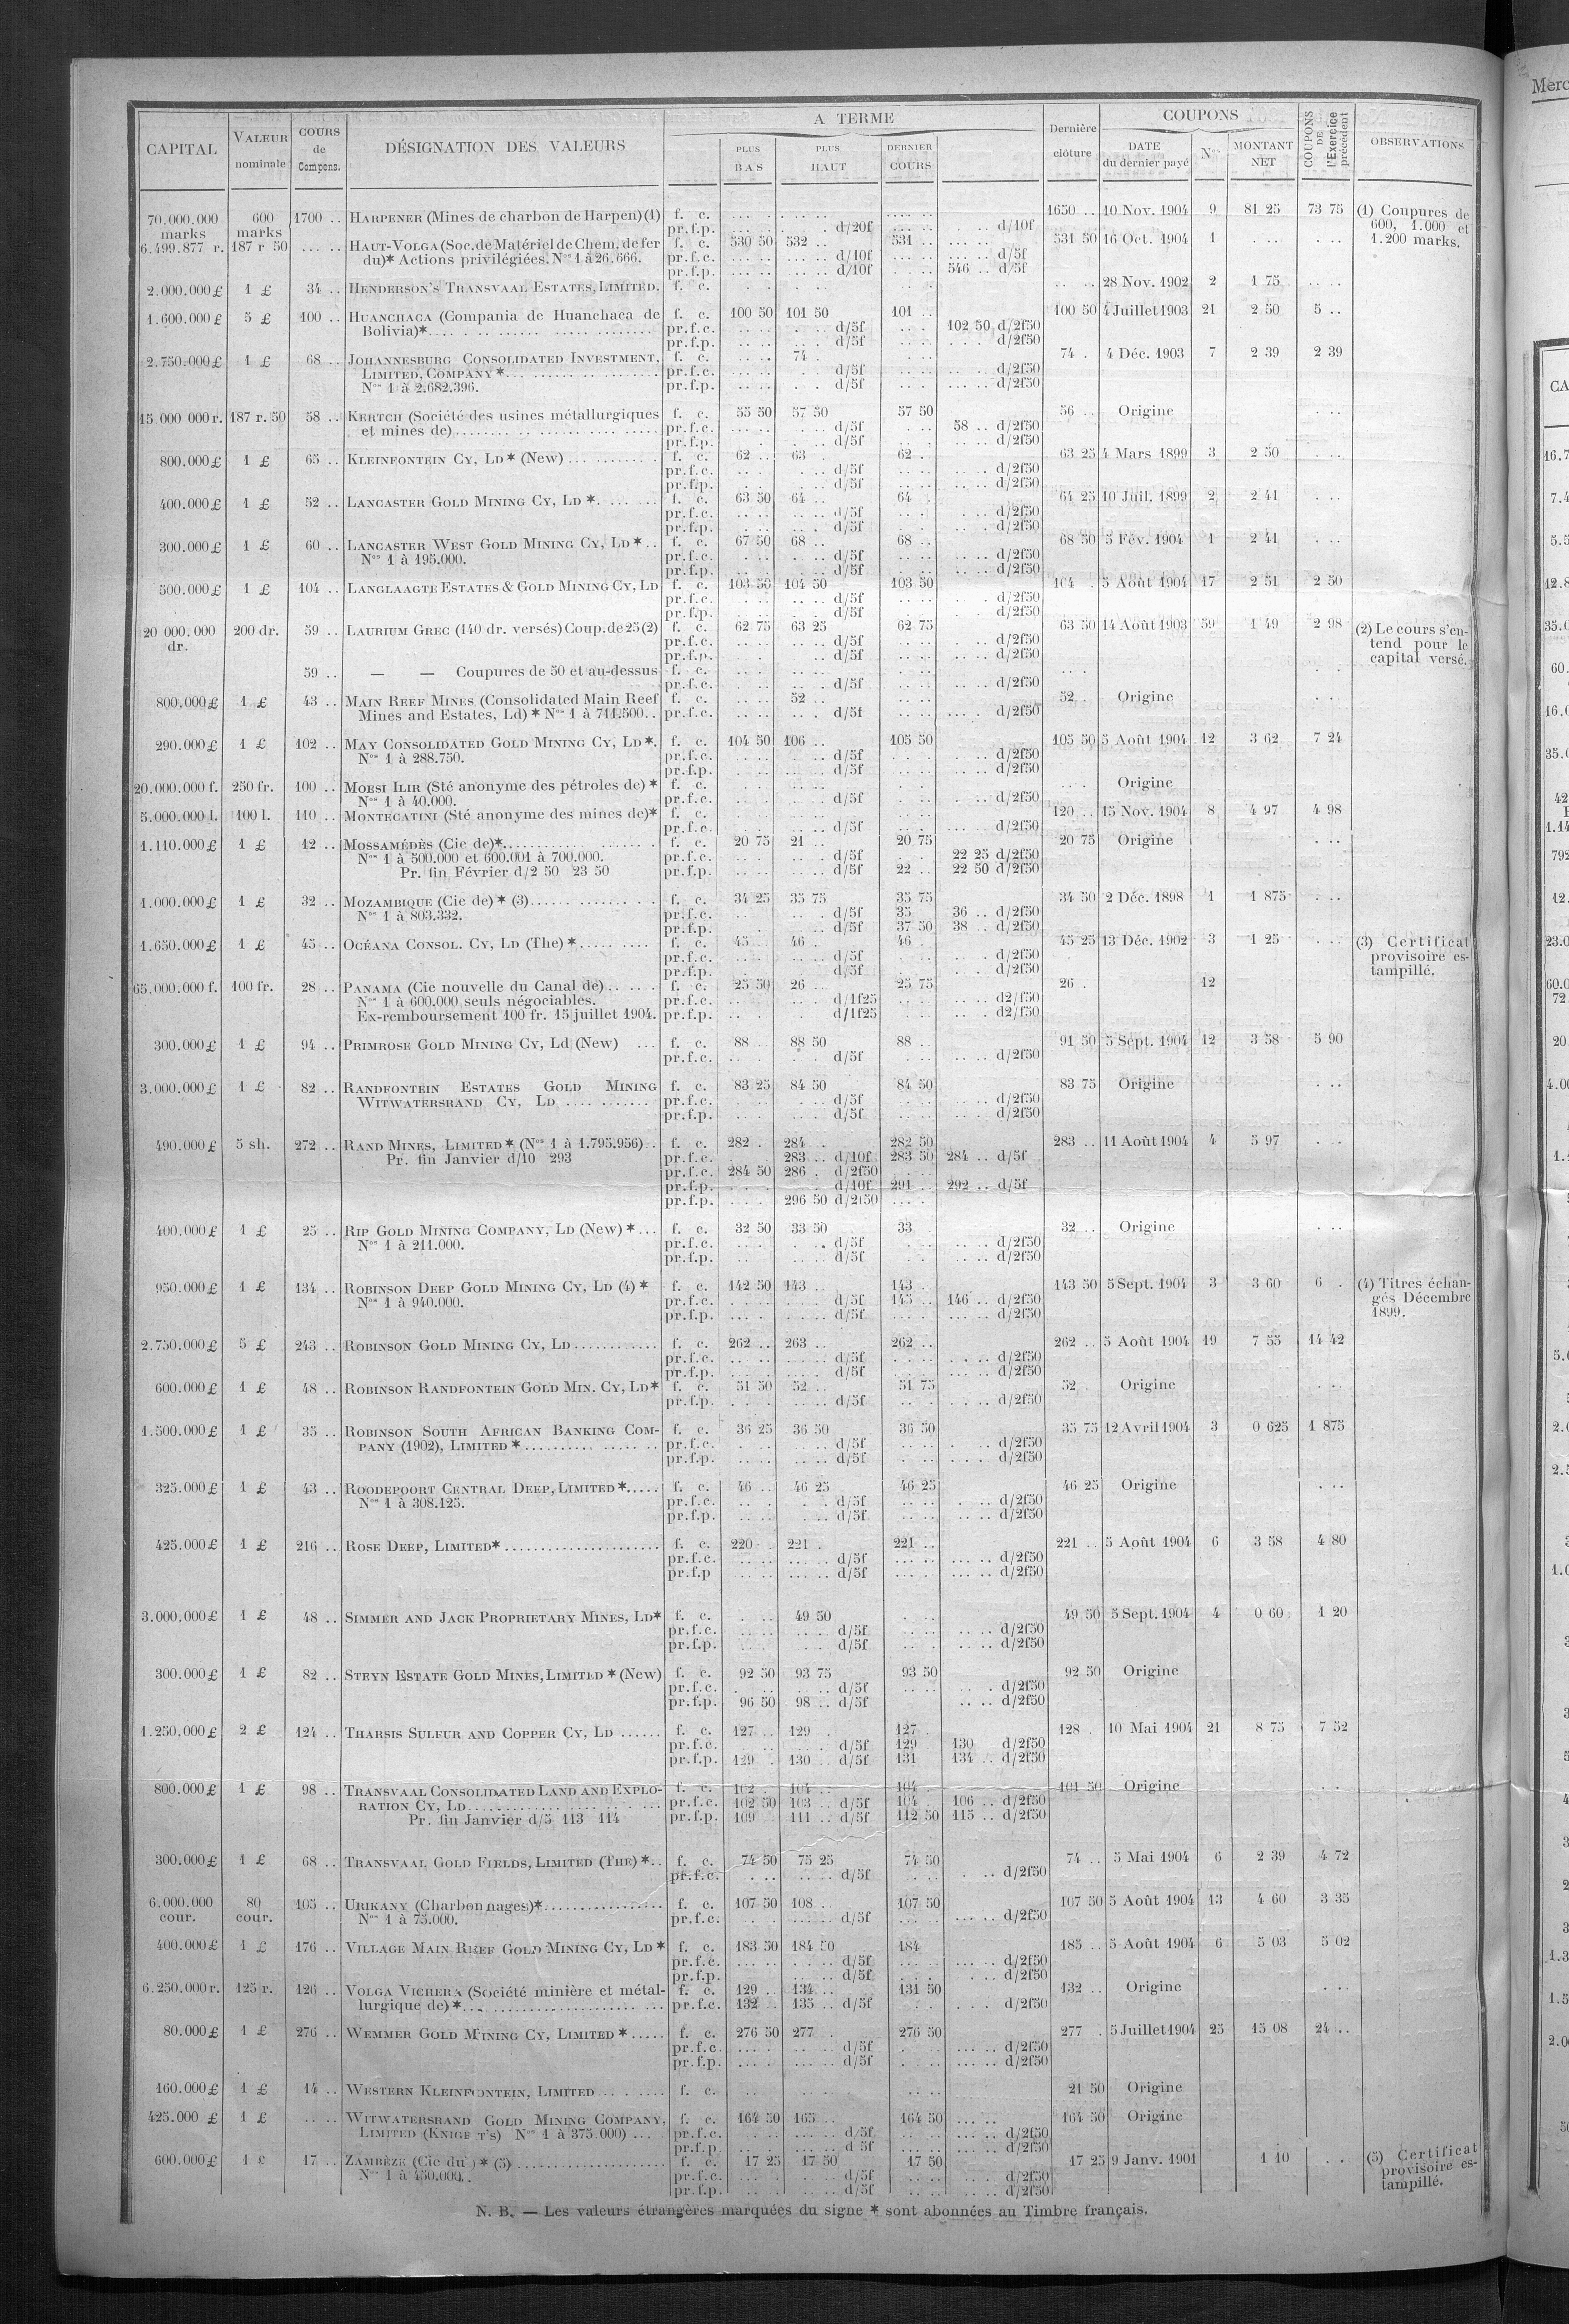 CAPITAL | VALEUR nominale | COURS de Compens. | DÉSIGNATION DES VALEURS | A TERME | PLUS BAS | PLUS HAUT | DERNIER COURS | Dernière clôture | COUPONS | DATE du dernier payé | Nos | MONTANT NET | COUPONS DE l'Exercice précédent | OBSERVATIONS
70.000.000 marks | 600 marks | 1700 .. | HARPENER (Mines de charbon de Harpen) (1) | f. c. | 1650 .. | 10 Nov. 1904 | 9 | 81 25 | 73 75 | (1) Coupures de 600, 1.000 et 1.200 marks.
pr.f.p. | d/20f | d/10f
6.499.877 r. | 187 r 50 | HAUT-VOLGA (Soc. de Matériel de Chem. de fer | f. c. | 530 50 | 532 .. | 531 .. | 531 50 | 16 Oct. 1904 | 1
du)* Actions privilégiées. Nos 1 à 26.666. | pr.f.c. | d/10f | d/5f
pr.f.p. | d/10f | 546 .. d/5f
2.000.000 £ | 1 £ | 34 .. | HENDERSON'S TRANSVAAL ESTATES, LIMITED. | f. c. | 28 Nov. 1902 | 2 | 1 75
1.600.000 £ | 5 £ | 100 .. | HUANCHACA (Compania de Huanchaca de | f. c. | 100 50 | 101 50 | 101 .. | 100 50 | 4 Juillet 1903 | 21 | 2 50 | 5 ..
Bolivia)* | pr.f.c. | d/5f | 102 50 d/2f50
pr.f.p. | d/5f | d/2f50
2.750.000 £ | 1 £ | 68 .. | JOHANNESBURG CONSOLIDATED INVESTMENT, | f. c. | 74 . | 74 . | 4 Déc. 1903 | 7 | 2 39 | 2 39
LIMITED, COMPANY * | pr.f.c. | d/5f | d/2f50
Nos 1 à 2.682.396. | pr.f.p. | d/5f | d/2f50
15.000 000 r. | 187 r. 50 | 58 .. | KERTCH (Société des usines métallurgiques | f. c. | 55 50 | 57 50 | 57 50 | 56 .. | Origine
et mines de) | pr.f.c. | d/5f | 58 .. d/2f50
pr.f.p. | d/5f | d/2f50
800.000 £ | 1 £ | 65 .. | KLEINFONTEIN CY, LD * (New) | f. c. | 62 .. | 63 . | 62 .. | 63 25 | 4 Mars 1899 | 3 | 2 50
pr.f.c. | d/5f | d/2f50
pr.f.p. | d/5f | d/2f50
400.000 £ | 1 £ | 52 .. | LANCASTER GOLD MINING CY, LD * | f. c. | 63 50 | 64 .. | 64 . | 64 25 | 10 Juil. 1899 | 2 | 2 41
pr.f.c. | d/5f | d/2f50
pr.f.p. | d/5f | d/2f50
300.000 £ | 1 £ | 60 .. | LANCASTER WEST GOLD MINING CY, LD * | f. c. | 67 50 | 68 .. | 68 .. | 68 50 | 5 Fév. 1904 | 1 | 2 41
Nos 1 à 195.000. | pr.f.c. | d/5f | d/2f50
pr.f.p. | d/5f | d/2f50
500.000 £ | 1 £ | 104 .. | LANGLAAGTE ESTATES & GOLD MINING CY, LD | f. c. | 103 50 | 104 50 | 103 50 | 104 . | 5 Août 1904 | 17 | 2 51 | 2 50
pr.f.c. | d/5f | d/2f50
pr.f.p. | d/5f | d/2f50
20 000.000 dr. | 200 dr. | 59 .. | LAURIUM GREC (140 dr. versés) Coup. de 25 (2) | f. c. | 62 75 | 63 25 | 62 75 | 63 50 | 14 Août 1903 | 59 | 1 49 | 2 98 | (2) Le cours s'entend pour le capital versé.
pr.f.c. | d/5f | d/2f50
pr.f.p. | d/5f | d/2f50
59 .. | — — Coupures de 50 et au-dessus | f. c.
pr.f.c. | d/5f | d/2f50
800.000 £ | 1 £ | 43 .. | MAIN REEF MINES (Consolidated Main Reef | f. c. | 52 .. | 52 . | Origine
Mines and Estates, Ld) * Nos 1 à 711.500.. | pr.f.c. | d/5f | d/2f50
290.000 £ | 1 £ | 102 .. | MAY CONSOLIDATED GOLD MINING CY, LD *. | f. c. | 104 50 | 106 .. | 105 50 | 105 50 | 5 Août 1904 | 12 | 3 62 | 7 24
Nos 1 à 288.750. | pr.f.c. | d/5f | d/2f50
pr.f.p. | d/5f | d/2f50
20.000.000 f. | 250 fr. | 100 .. | MOESI ILIR (Sté anonyme des pétroles de) * | f. c. | Origine
Nos 1 à 40.000. | pr.f.c. | d/5f | d/2f50
5.000.000 l. | 100 l. | 110 .. | MONTECATINI (Sté anonyme des mines de)* | f. c. | 120 .. | 15 Nov. 1904 | 8 | 4 97 | 4 98
pr.f.c. | d/5f | d/2f50
1.110.000 £ | 1 £ | 12 .. | MOSSAMÉDÈS (Cie de)* | f. c. | 20 75 | 21 .. | 20 75 | 20 75 | Origine
Nos 1 à 500.000 et 600.001 à 700.000. | pr.f.c. | d/5f | 22 25 d/2f50
Pr. fin Février d/2 50 23 50 | pr.f.p. | d/5f | 22 .. | 22 50 d/2f50
1.000.000 £ | 1 £ | 32 .. | MOZAMBIQUE (Cie de) * (3) | f. c. | 34 25 | 35 75 | 35 75 | 34 50 | 2 Déc. 1898 | 1 | 1 875
Nos 1 à 803.332. | pr.f.c. | d/5f | 35 | 36 .. d/2f50
pr.f.p. | d/5f | 37 50 | 38 .. d/2f50
1.650.000 £ | 1 £ | 45 .. | OCÉANA CONSOL. CY, LD (The) * | f. c. | 45 . | 46 . | 46 . | 45 25 | 13 Déc. 1902 | 3 | 1 25 | (3) Certificat provisoire estampillé.
pr.f.c. | d/5f | d/2f50
pr.f.p. | d/5f | d/2f50
65.000.000 f. | 100 fr. | 28 .. | PANAMA (Cie nouvelle du Canal de) | f. c. | 25 50 | 26 .. | 25 75 | 26 . | 12
Nos 1 à 600.000 seuls négociables. | pr.f.c. | d/1f25 | d2/f50
Ex-remboursement 100 fr. 15 juillet 1904. | pr.f.p. | d/1f25 | d2/f50
300.000 £ | 1 £ | 94 .. | PRIMROSE GOLD MINING CY, Ld (New) | f. c. | 88 | 88 50 | 88 .. | 91 50 | 5 Sept. 1904 | 12 | 3 58 | 5 90
pr.f.c. | d/5f | d/2f50
3.000.000 £ | 1 £ | 82 .. | RANDFONTEIN ESTATES GOLD MINING | f. c. | 83 25 | 84 50 | 84 50 | 83 75 | Origine
WITWATERSRAND CY, LD | pr.f.c. | d/5f | d/2f50
pr.f.p. | d/5f | d/2f50
490.000 £ | 5 sh. | 272 .. | RAND MINES, LIMITED * (Nos 1 à 1.795.956) | f. c. | 282 . | 284 . | 282 50 | 283 .. | 11 Août 1904 | 4 | 5 97
Pr. fin Janvier d/10 293 | pr.f.c. | 283 .. d/10f | 283 50 | 284 .. d/5f
pr.f.c. | 284 50 | 286 . d/2f50
pr.f.p. | d/10f | 291 .. | 292 .. d/5f
pr.f.p. | 296 50 d/2f50
400.000 £ | 1 £ | 25 .. | RIP GOLD MINING COMPANY, LD (New) * | f. c. | 32 50 | 33 50 | 33 | 32 .. | Origine
Nos 1 à 211.000. | pr.f.c. | d/5f | d/2f50
pr.f.p. | d/5f | d/2f50
950.000 £ | 1 £ | 134 .. | ROBINSON DEEP GOLD MINING CY, LD (4) * | f. c. | 142 50 | 143 .. | 143 .. | 143 50 | 5 Sept. 1904 | 3 | 3 60 | 6 . | (4) Titres échangés Décembre 1899.
Nos 1 à 940.000. | pr.f.c. | d/5f | 145 .. | 146 .. d/2f50
pr.f.p. | d/5f | d/2f50
2.750.000 £ | 5 £ | 243 .. | ROBINSON GOLD MINING CY, LD | f. c. | 262 .. | 263 .. | 262 .. | 262 .. | 5 Août 1904 | 19 | 7 55 | 14 42
pr.f.c. | d/5f | d/2f50
pr.f.p. | d/5f | d/2f50
600.000 £ | 1 £ | 48 .. | ROBINSON RANDFONTEIN GOLD MIN. CY, LD* | f. c. | 51 50 | 52 .. | 51 75 | 52 . | Origine
pr.f.p. | d/5f | d/2f50
1.500.000 £ | 1 £ | 35 .. | ROBINSON SOUTH AFRICAN BANKING COM- | f. c. | 36 25 | 36 50 | 36 50 | 35 75 | 12 Avril 1904 | 3 | 0 625 | 1 875
PANY (1902), LIMITED * | pr.f.c. | d/5f | d/2f50
pr.f.p. | d/5f | d/2f50
325.000 £ | 1 £ | 43 .. | ROODEPOORT CENTRAL DEEP, LIMITED * | f. c. | 46 .. | 46 25 | 46 25 | 46 25 | Origine
Nos 1 à 308.125. | pr.f.c. | d/5f | d/2f50
pr.f.p. | d/5f | d/2f50
425.000 £ | 1 £ | 216 .. | ROSE DEEP, LIMITED* | f. c. | 220 | 221 . | 221 .. | 221 .. | 5 Août 1904 | 6 | 3 58 | 4 80
pr.f.c. | d/5f | d/2f50
pr.f.p | d/5f | d/2f50
3.000.000 £ | 1 £ | 48 .. | SIMMER AND JACK PROPRIETARY MINES, LD* | f. c. | 49 50 | 49 50 | 5 Sept. 1904 | 4 | 0 60 | 1 20
pr.f.c. | d/5f | d/2f50
pr.f.p. | d/5f | d/2f50
300.000 £ | 1 £ | 82 .. | STEYN ESTATE GOLD MINES, LIMITED * (New) | f. c. | 92 50 | 93 75 | 93 50 | 92 50 | Origine
pr.f.c. | d/5f | d/2f50
pr.f.p. | 96 50 | 98 .. d/5f | d/2f50
1.250.000 £ | 2 £ | 124 .. | THARSIS SULFUR AND COPPER CY, LD | f. c. | 127 .. | 129 . | 127 | 128 . | 10 Mai 1904 | 21 | 8 75 | 7 52
pr.f.c. | d/5f | 129 | 130 d/2f50
pr.f.p. | 129 . | 130 .. d/5f | 131 | 134 .. d/2f50
800.000 £ | 1 £ | 98 .. | TRANSVAAL CONSOLIDATED LAND AND EXPLO- | f. c. | 102 . | 104 .. | 104 . | 101 50 | Origine
RATION CY, LD | pr.f.c. | 102 50 | 103 .. d/5f | 104 . | 106 .. d/2f50
Pr. fin Janvier d/5 113 114 | pr.f.p. | 109 | 111 .. d/5f | 112 50 | 115 .. d/2f50
300.000 £ | 1 £ | 68 .. | TRANSVAAL GOLD FIELDS, LIMITED (THE) * | f. c. | 74 50 | 75 25 | 74 50 | 74 .. | 5 Mai 1904 | 6 | 2 39 | 4 72
pr.f.c. | d/5f | d/2f50
6.000.000 cour. | 80 cour. | 105 .. | URIKANY (Charbonnages)* | f. c. | 107 50 | 108 .. | 107 50 | 107 50 | 5 Août 1904 | 13 | 4 60 | 3 35
Nos 1 à 75.000. | pr.f.c. | d/5f | d/2f50
400.000 £ | 1 £ | 176 .. | VILLAGE MAIN REEF GOLD MINING CY, LD * | f. c. | 183 50 | 184 50 | 184 | 185 .. | 5 Août 1904 | 6 | 5 03 | 5 02
pr.f.c. | d/5f | d/2f50
pr.f.p. | d/5f | d/2f50
6.250.000 r. | 125 r. | 126 .. | VOLGA VICHERA (Société minière et métal- | f. c. | 129 .. | 134 .. | 131 50 | 132 .. | Origine
lurgique de) * | pr.f.c. | 132 | 135 .. d/5f | d/2f50
80.000 £ | 1 £ | 276 .. | WEMMER GOLD MINING CY, LIMITED * | f. c. | 276 50 | 277 . | 276 50 | 277 . | 5 Juillet 1904 | 25 | 15 08 | 24 ..
pr.f.c. | d/5f | d/2f50
pr.f.p. | d/5f | d/2f50
160.000 £ | 1 £ | 14 .. | WESTERN KLEINFONTEIN, LIMITED | f. c. | 21 50 | Origine
425.000 £ | 1 £ | WITWATERSRAND GOLD MINING COMPANY, | f. c. | 164 50 | 165 .. | 164 50 | 164 50 | Origine
LIMITED (KNIGHT'S) Nos 1 à 375.000) | pr.f.c. | d/5f | d/2f50
pr.f.p. | d 5f | d/2f50
600.000 £ | 1 £ | 17 .. | ZAMBÈZE (Cie du) * (5) | f. c. | 17 25 | 17 50 | 17 50 | 17 25 | 9 Janv. 1901 | 1 10 | (5) Certificat provisoire estampillé.
Nos 1 à 450.000.. | pr.f.c. | d/5f | d/2f50
pr.f.p. | d/5f | d/2f50
N. B. — Les valeurs étrangères marquées du signe * sont abonnées au Timbre français.
Merc
CA